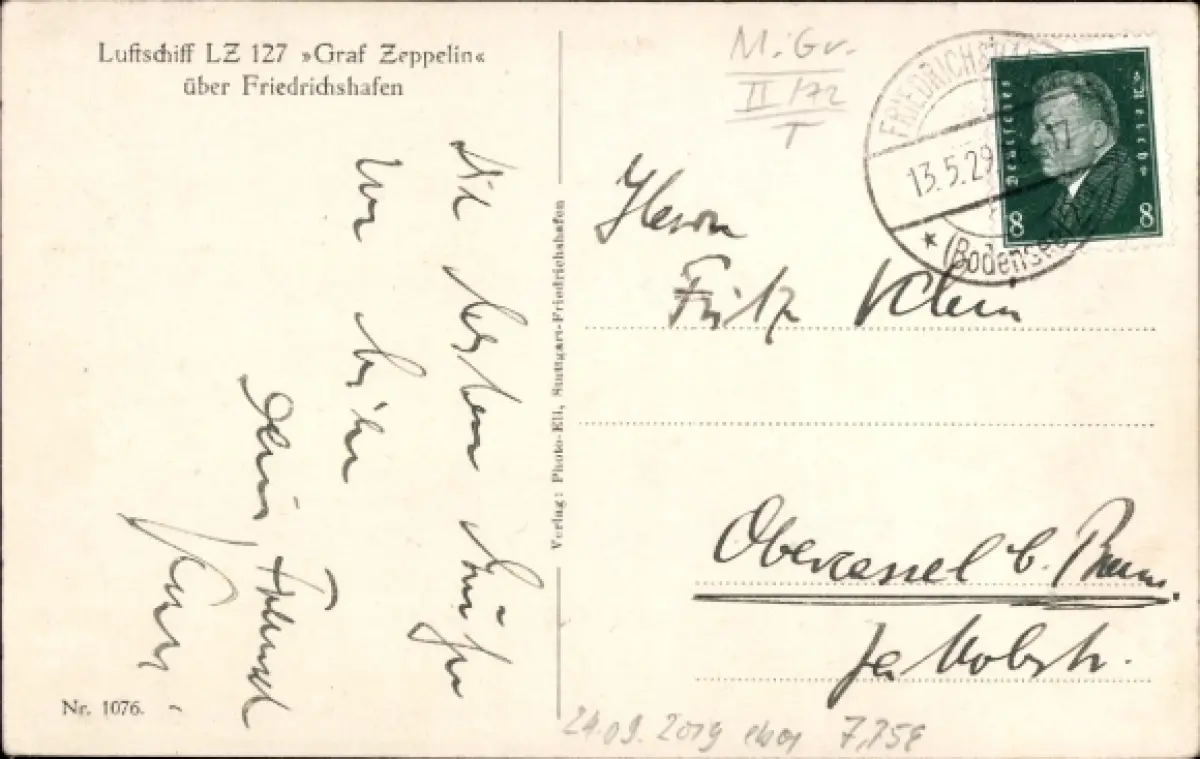 Luftschiff LZ 127 »Graf Zeppelin«
über Friedrichshafen
Mit besten Grüßen
von
Dein Freund
Nr. 1076.
Verlag: Photo-Eli, Stuttgart-Friedrichshafen
M.Gr.
II/72
T
FRIEDRICHSHA
13.5.29
* (Bodensee)
Deutsches Reich
8 8
Herrn
Fritz Klein
Obercassel b. Bonn.
Jakobstr.
24.09.2019 ebay 7,75€